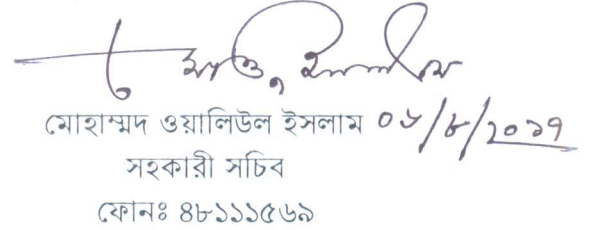 মোহাম্মদ ওয়ালিউল ইসলাম ০৬/৮/২০১৭
সহকারী সচিব
ফোনঃ ৪৮১১১৫৬৯